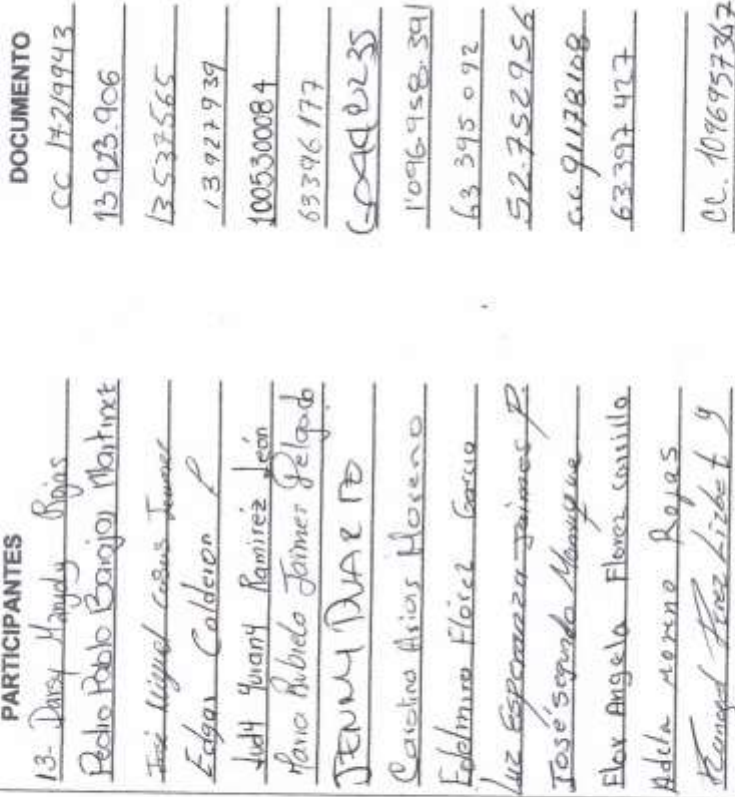 PARTICIPANTES DOCUMENTO
13- Daisy Rojas CC
Pedro Pablo Barajas Martinez 13.923.906
José Miguel 13537565
Edgar Calderon P 13927939
Judy Yurany Ramirez León 1005300084
Maria Rubiela Jaimes Delgado 63396177
JENNY DUARTE
Carolina Arias Moreno 1'096.958.391
Edelmira Flórez Garcia 63 395 092
Luz Esperanza Jaimes P. 52.752956
José Segundo Manrique c.c. 91178108
Flor Angela Florez Carrillo 63.397 427
Adela Moreno Rojas
Lizbet y CC. 1096957367